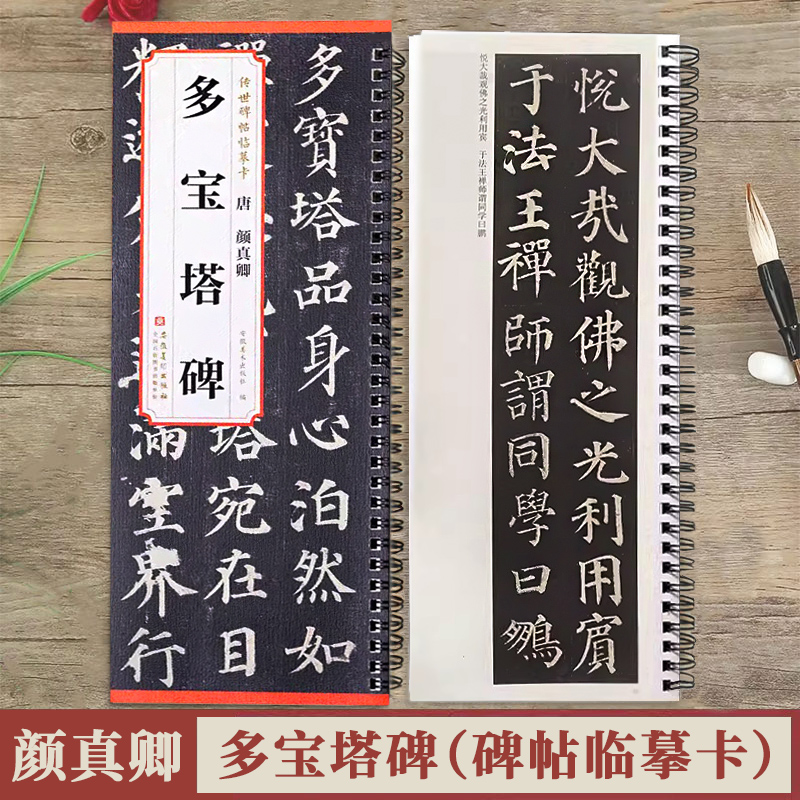 多寶塔品身心泊然如
塔宛在目
滿空界行
传世碑帖临摹卡
唐 颜真卿
多宝塔碑
安徽美术出版社 编
安徽美术出版社
全国百佳图书出版单位
悦大哉觀佛之光利用賓
于法王禪師謂同學曰鵬
悦大哉观佛之光利用宾 于法王禅师谓同学曰鹏
颜真卿 多宝塔碑(碑帖临摹卡)